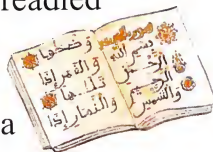 readied
بسم الله
الرحمن
الرحيم
والشمس
وضحها
والقمر إذا
تلها
والنهار إذا
a